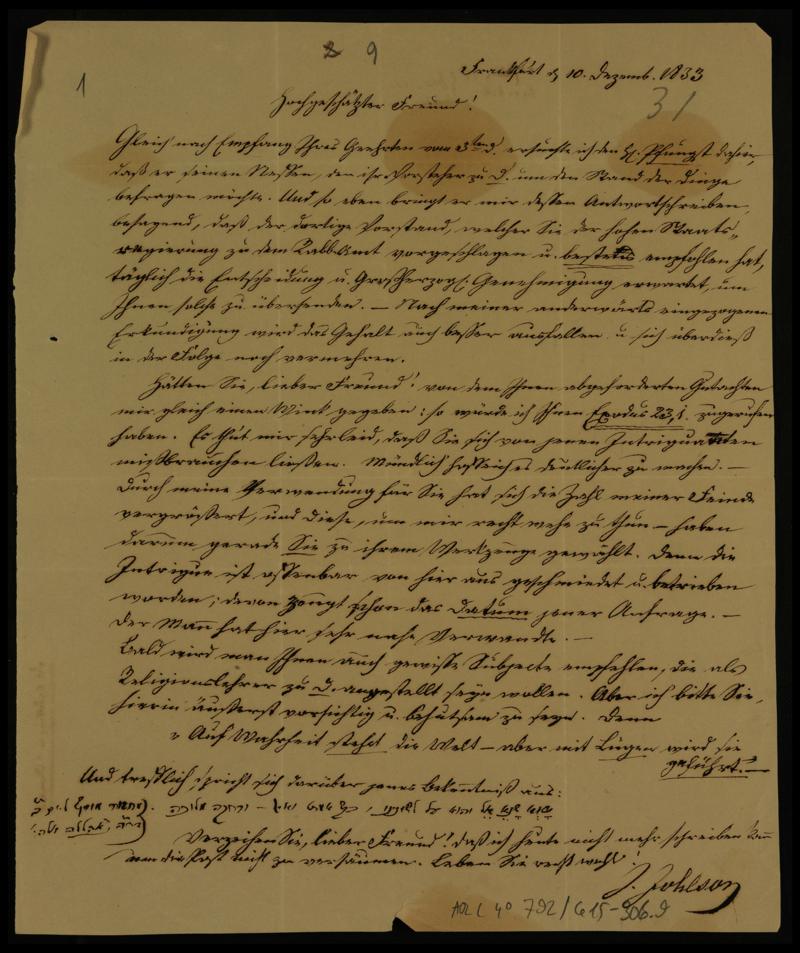 9
1
Frankfurt d 10. Dezemb. 1833
31
Hochgeschätzter Freund!
Gleich nach Empfang Ihres Geehrten vom 3ten d. ersuchte ich den H. Pfungst dahier,
daß er seinen Neffen, den isr. Vorsteher zu D. um den Stand der Dinge
befragen möchte. Und so eben bringt er mir dessen Antwortschreiben,
besagend, daß der dortige Vorstand, welcher Sie der hohen Staats-
regierung zu dem Rabb. Amt vorgeschlagen u. bestens empfohlen hat,
täglich die Entscheidung u. Großherzogl. Genehmigung erwartet, um
Ihnen solche zu übersenden. — Nach meiner anderwärts eingezogenen
Erkundigung wird das Gehalt auch besser ausfallen u. sich überdieß
in der Folge noch vermehren.
Hätten Sie, lieber Freund! von dem Ihnen abgeforderten Gutachten
mir gleich einen Wink gegeben: so würde ich Ihnen Exodus 23,1. zugerufen
haben. Es thut mir sehr leid, daß Sie sich von jenen Intriguanten
mißbrauchen ließen. Mündlich hoffe ich es deutlicher zu machen. —
Durch meine Verwendung für Sie hat sich die Zahl meiner Feinde
vergrößert, und diese, um mir recht wehe zu thun — haben
darum gerade Sie zu ihrem Werkzeuge gewählt. Denn die
Intrigue ist offenbar von hier aus geschmiedet u. betrieben
worden; davon zeugt schon das Datum jener Anfrage. —
Der Mann hat hier sehr nahe Verwandte. —
Bald wird man Ihnen auch gewisse Subjecte empfehlen, die als
Religionslehrer zu D. angestellt seyn wollen. Aber ich bitte Sie,
hierin äußerst vorsichtig u. behutsam zu seyn. Denn
"Auf Wahrheit steht die Welt — aber mit Lügen wird sie
geführt." —
Und trefflich spricht sich darüber jenes Bekenntniß aus:
Verzeihen Sie, lieber Freund! daß ich heute nicht mehr schreiben kann
um die Post nicht zu versäumen. Leben Sie recht wohl!
J. Johlson